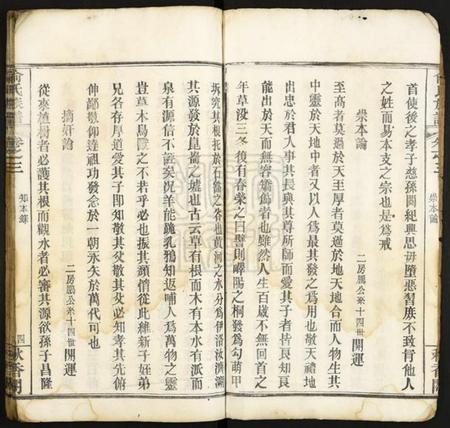 首使後之孝子慈孫閱紀興思毋墮惡習庶不致脅他人
之姓而易本支之宗也是爲戒
崇本論
二房鵬公米十四世開運
至高者莫過於天至厚者莫過於地天地合而人物生其
中靈於天地中者又以人爲最其發之爲用也敬天禮地
出忠於君人事其與其尊所師而愛其子者皆良知良
能出於天而無容矯爲者也雖然人生百歲不無回首之
年草没三冬後有春榮之日豐則嶧陽之桐發爲勾萌甲
坼究其根托於石黨之谷也黃河之水分爲伊洛汝濟濕
其源發於崑崙之墟也古云草有根而木有本水有派而
泉有源信不誣矣况羊能跪乳鴉知返哺人爲萬物之靈
豈草木鳥獸之不若乎必也振其頭僧從此維新子姪弟
兄各存厚道愛其子即知敬其父敬其父必知孝其先俯
伸鄰敬仰達祖功發念於一朝永矢於萬代可也
摘奸論
二房鵬公米十四世開運
從來植樹者必護其根而觀水者必審其源欲孫子昌隆
俞氏族譜
卷之三
知本錄
四
秋香閣
崇本論